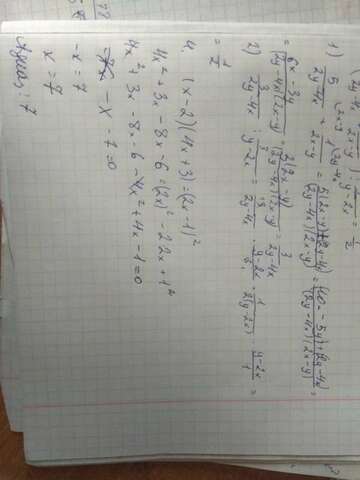 1) 5/(2y-4x) + 1/(2x-y) = (5(2x-y)+2y-4x)/((2y-4x)(2x-y)) = ((10x-5y)+(2y-4x))/((2y-4x)(2x-y)) =
= (6x-3y)/((2y-4x)(2x-y)) = 3(2x-y)/((2y-4x)(2x-y)) = 3/(2y-4x)
2) 3/(2y-4x) : 3/(y-2x) = 3/(2y-4x) · (y-2x)/3 = 1/(2(y-2x)) · (y-2x)/1 =
= 1/2
4. (x-2)(4x+3)=(2x-1)²
4x²+3x-8x-6=(2x)²-2·2x+1²
4x²+3x-8x-6-4x²+4x-1=0
-x-7=0
-x=7
x=7